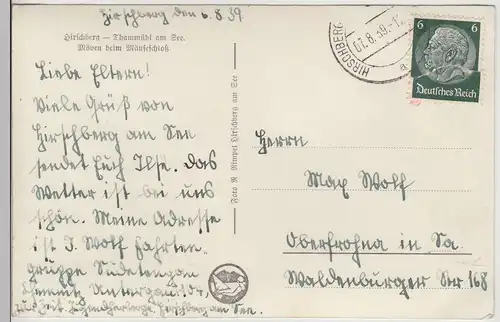 Hirschberg den 6.8.39
Hirschberg — Thammühl am See.
Möven beim Mäuseschloß
Liebe Eltern!
Viele Grüß von
Hirschberg am See
sendet Euch Ilse. Das
Wetter ist bei uns
schön. Meine Adresse
ist I. Wolf Fahrten-
gruppe Sudetengau
Chemnitz Untergau 104,
zur Zeit Jugendherberge Hirschberg am See.
Foto R. Rimpel Hirschberg am See
HIRSCHBERG
07.8.39.-12
a
6 6
Deutsches Reich
Herrn
Max Wolf
Oberfrohna in Sa.
Waldenburger Str 168